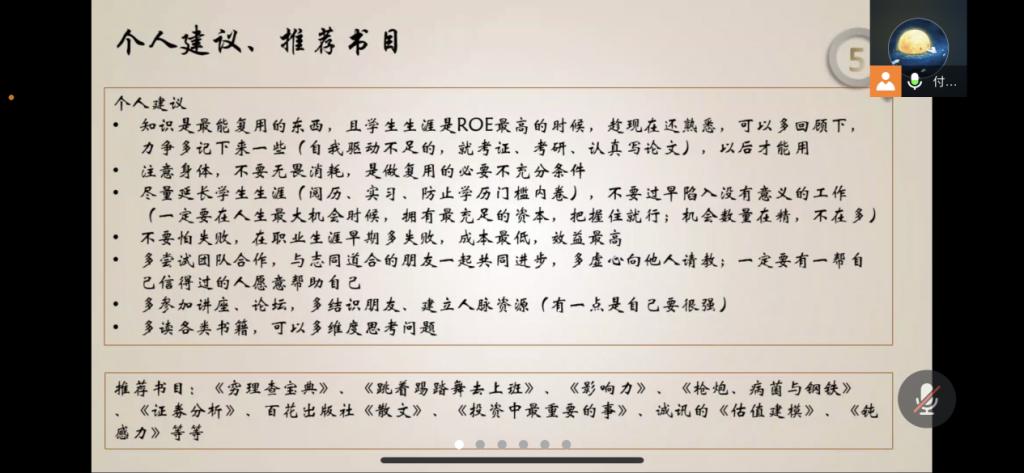 个人建议、推荐书目
5
付...
个人建议
• 知识是最能复用的东西，且学生生涯是ROE最高的时候，趁现在还熟悉，可以多回顾下，
力争多记下来一些（自我驱动不足的，就考证、考研、认真写论文），以后才能用
• 注意身体，不要无畏消耗，是做复用的必要不充分条件
• 尽量延长学生生涯（阅历、实习、防止学历门槛内卷），不要过早陷入没有意义的工作
（一定要在人生最大机会时候，拥有最充足的资本，把握住就行；机会数量在精，不在多）
• 不要怕失败，在职业生涯早期多失败，成本最低，效益最高
• 多尝试团队合作，与志同道合的朋友一起共同进步，多虚心向他人请教；一定要有一帮自
己信得过的人愿意帮助自己
• 多参加讲座、论坛，多结识朋友、建立人脉资源（有一点是自己要很强）
• 多读各类书籍，可以多维度思考问题
推荐书目：《穷理查宝典》、《跳着踢踏舞去上班》、《影响力》、《枪炮、病菌与钢铁》
、《证券分析》、百花出版社《散文》、《投资中最重要的事》、诚讯的《估值建模》、《钝
感力》等等